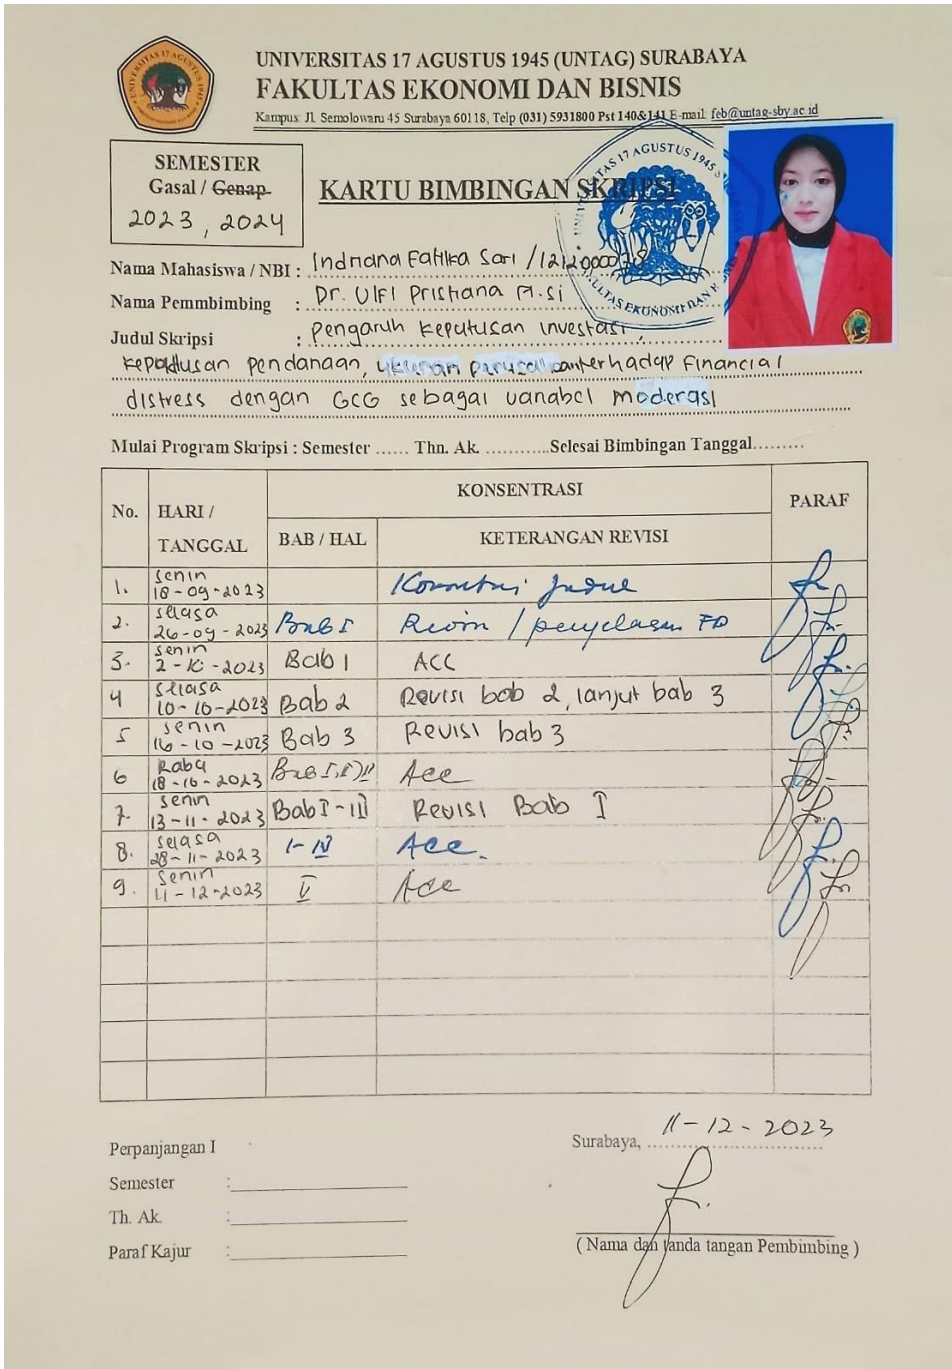 UNIVERSITAS 17 AGUSTUS 1945 (UNTAG) SURABAYA
FAKULTAS EKONOMI DAN BISNIS
Kampus: Jl. Semolowaru 45 Surabaya 60118, Telp (031) 5931800 Pst 140&141 E-mail: feb@untag-sby.ac.id
SEMESTER
Gasal / Genap
2023, 2024
KARTU BIMBINGAN SKRIPSI
Nama Mahasiswa / NBI : Indriana Fatika Sari /
Nama Pemmbimbing : Dr. Ulfi Pristiana M.si
Judul Skripsi : Pengaruh keputusan investasi,
keputusan pendanaan, ukuran perusahaan terhadap Financial
distress dengan GCG sebagai variabel moderasi
Mulai Program Skripsi : Semester ...... Thn. Ak. ............Selesai Bimbingan Tanggal.........
No. HARI / TANGGAL KONSENTRASI PARAF
BAB / HAL KETERANGAN REVISI
1. senin 18-09-2023 Judul
2. selasa 26-09-2023 Bab I Revisi / penjelasan FD
3. senin 2-10-2023 Bab 1 ACC
4 selasa 10-10-2023 Bab 2 Revisi bab 2, lanjut bab 3
5 senin 16-10-2023 Bab 3 Revisi bab 3
6 Rabu 18-10-2023 Bab I, II, III Acc
7. senin 13-11-2023 Bab I - III Revisi Bab I
8. selasa 28-11-2023 I-IV Acc.
9. senin 11-12-2023 V Acc
Perpanjangan I
Surabaya, 11-12-2023
Semester :
Th. Ak. :
Paraf Kajur :
( Nama dan tanda tangan Pembimbing )